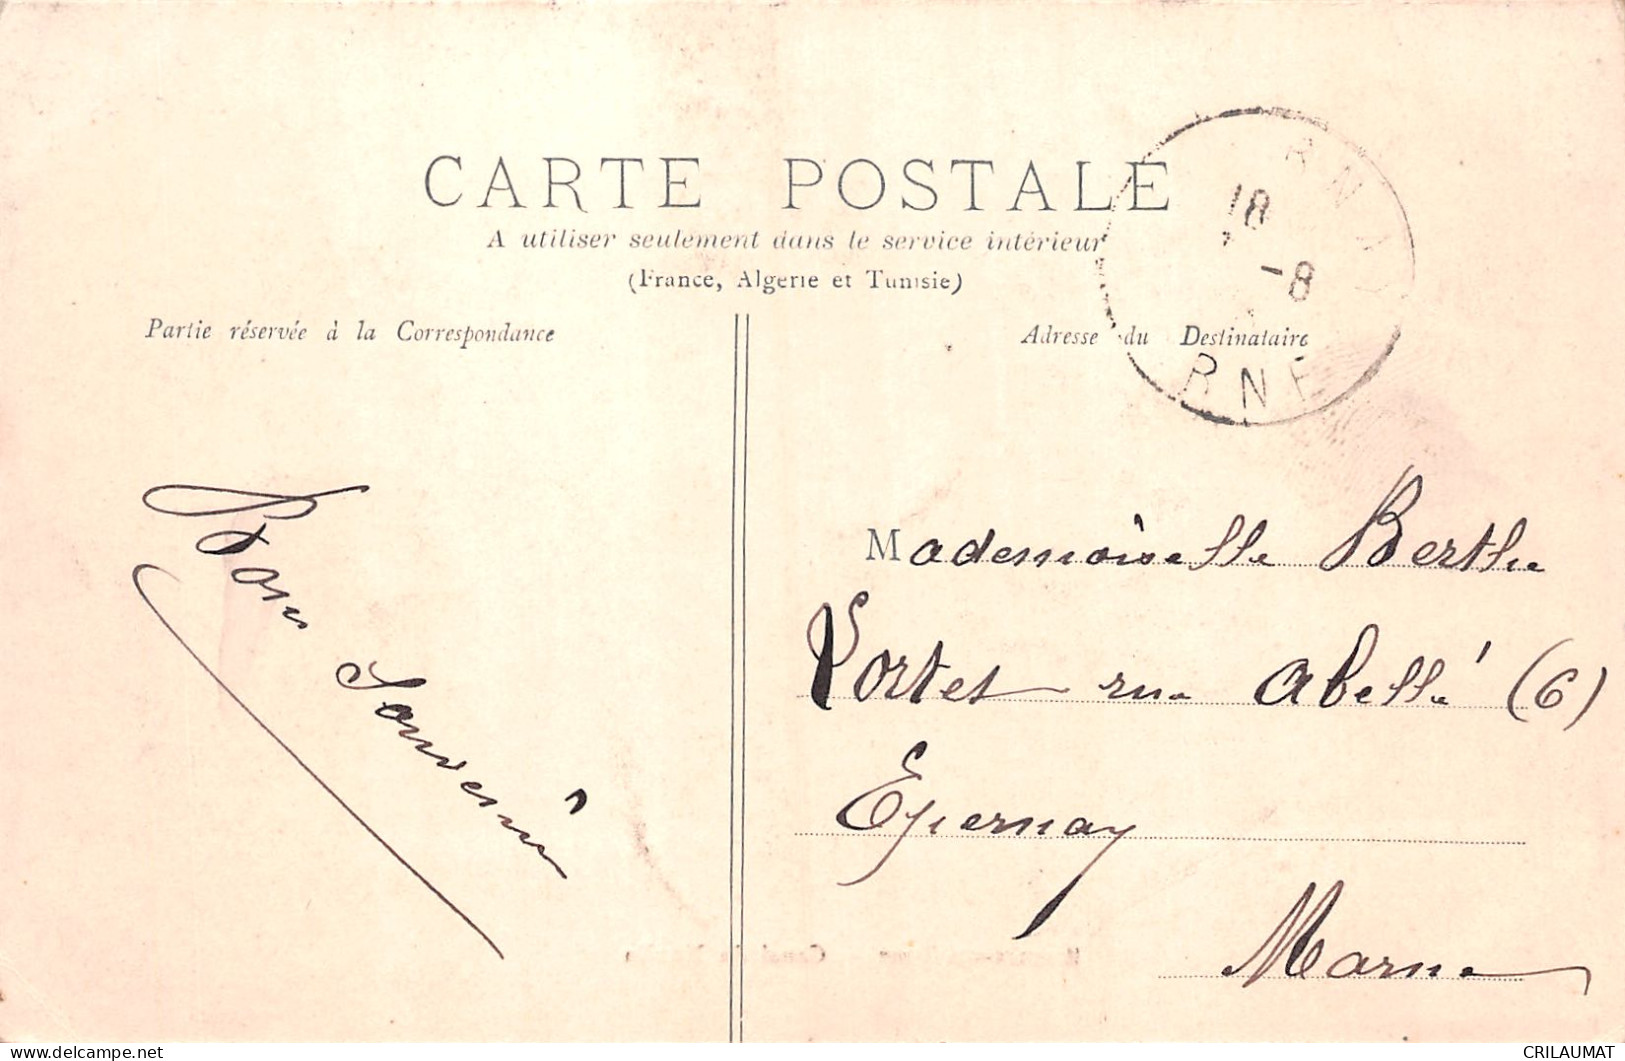 CARTE POSTALE
A utiliser seulement dans le service intérieur
(France, Algerie et Tunisie)
Partie réservée à la Correspondance
Adresse du Destinataire
18
-8
RNE
Bon
Souvenir
Mademoiselle Berthe
Portet rue Abellé (6)
Epernay
Marne
CRILAUMAT